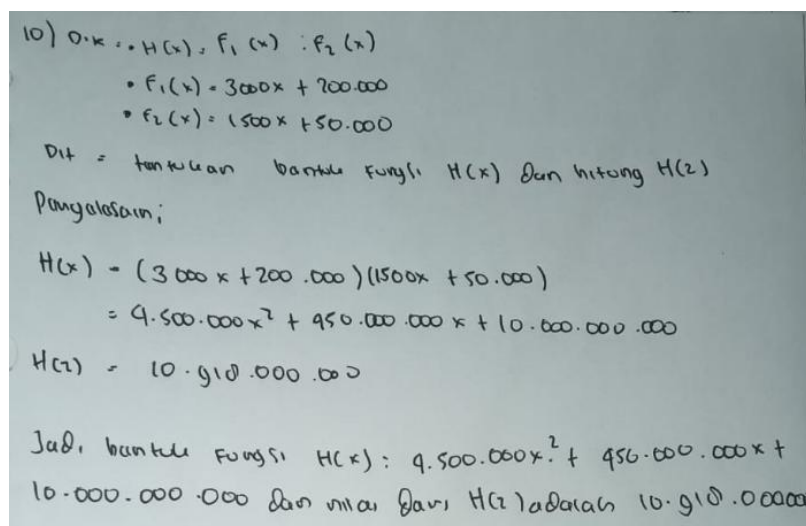 10) Dik : • H(x) = f₁ (x) : f₂ (x)
• f₁(x) = 3000x + 200.000
• f₂ (x) = 1500x + 50.000
Dit = tentukan bentuk fungsi H(x) dan hitung H(2)
Penyelesaian;
H(x) = (3000x + 200.000)(1500x + 50.000)
= 4.500.000x² + 450.000.000x + 10.000.000.000
H(2) = 10.918.000.000
Jadi bentuk fungsi H(x) : 4.500.000x² + 450.000.000x +
10.000.000.000 dan nilai dari H(2) adalah 10.918.00000